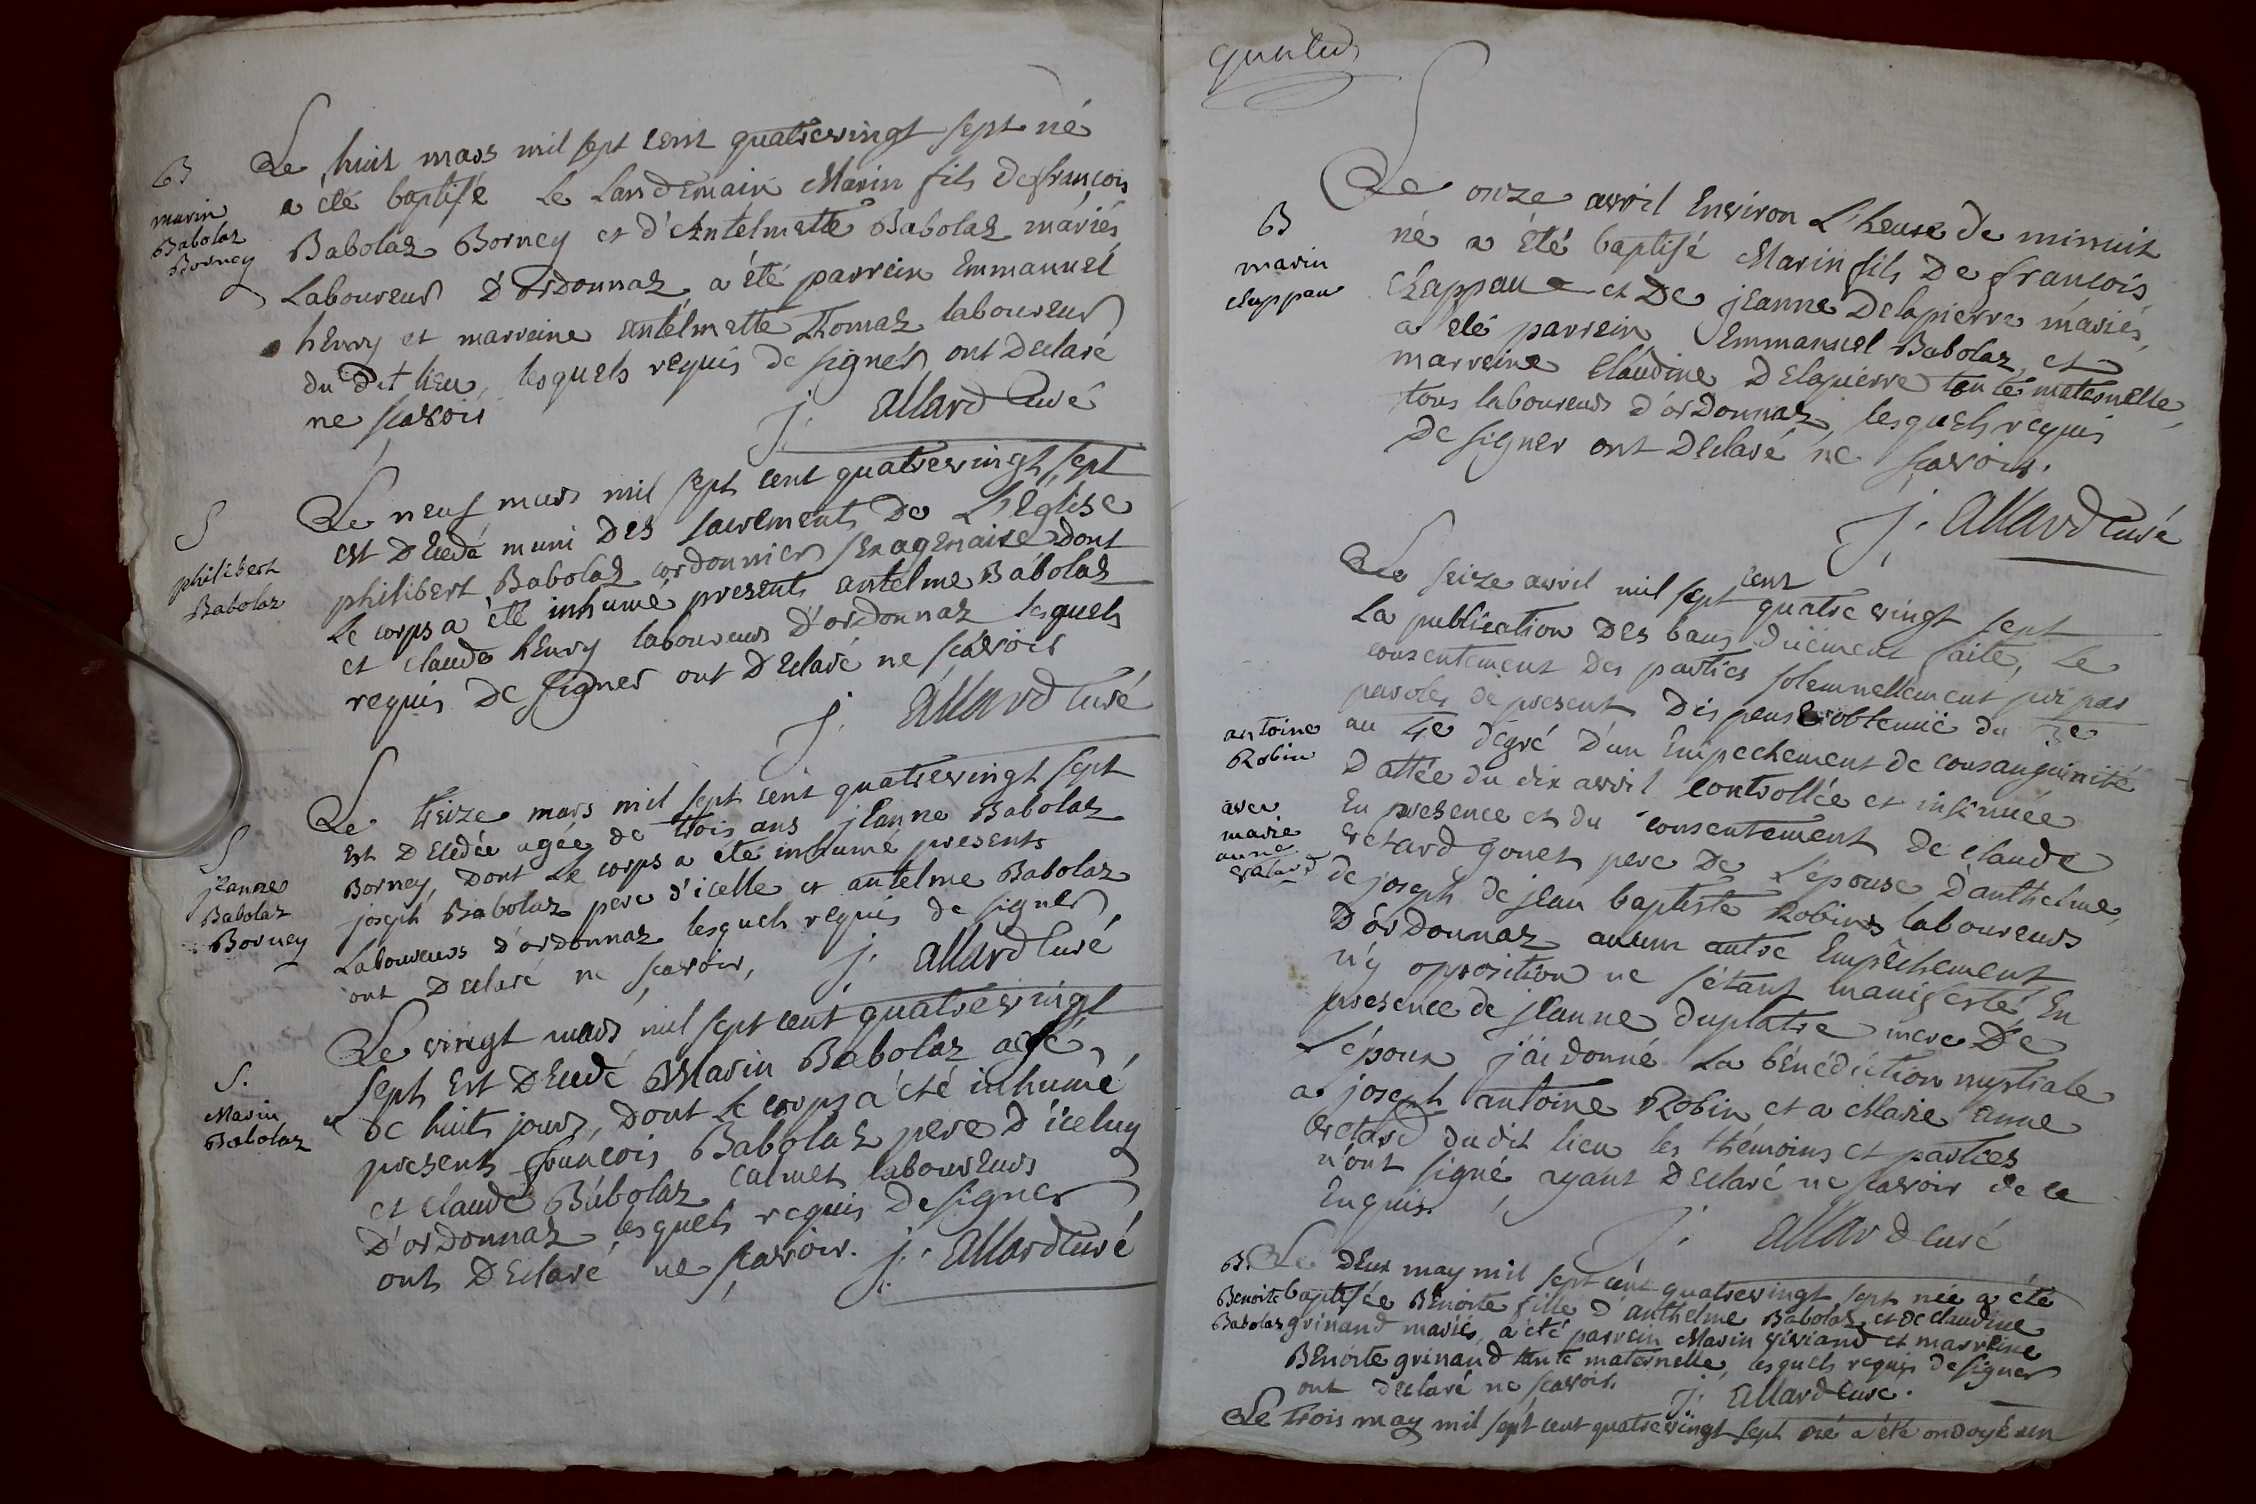 B
marin
Babolaz
Borney
Le huit mars mil sept cent quatrevingt sept né
a été baptisé le landemain Marin fils de françois
Babolaz Borney et d'Antelmette Babolaz mariés
Laboureurs d'ordonnaz a été parrein Emmanuel
henry et marreine antelmette Thomaz laboureurs
du dit lieu, lesquels requis de signer ont declaré
ne scavoir
j. allard Curé
S
philibert
Babolaz
Le neuf mars mil sept cent quatrevingt sept
est decedé muni des sacrements de L'Eglise
philibert Babolaz cordonnier sexagenaire dont
Le corps a été inhumé presents antelme Babolaz
et claude henry laboureurs d'ordonnaz lesquels
requis de signer ont declaré ne scavoir
j. allard Curé
S
jeanne
Babolaz
Borney
Le treize mars mil sept cent quatrevingt sept
est decedée agée de trois ans jeanne Babolaz
Borney, dont le corps a été inhumé presents
joseph Babolaz pere d'icelle et antelme Babolaz
Laboureurs d'ordonnaz lesquels requis de signer
ont declaré ne scavoir,
j. allard Curé
S.
Marin
Babolaz
Le vingt mars mil sept cent quatrevingt
sept est decedé Marin Babolaz agé
de huits jours, dont le corps a été inhumé
presents françois Babolaz pere d'iceluy
et claude Babolaz calmet laboureurs
D'ordonnaz lesquels requis de signer
ont declaré ne scavoir.
j. allard Curé
B
marin
chappau
Le onze avril Environ L'heure de minuit
né a été baptisé Marin fils de francois
chappau et de jeanne Delapierre mariés,
a été parrein Emmanuel Babolaz, et
marreine claudine Delapierre tente maternelle,
tous laboureurs d'ordonnaz, lesquels requis
de signer ont declaré ne scavoir.
j. allard Curé
antoine
Robin
avec
marie
anne
Le seize avril mil sept cent quatrevingt sept
La publication des bans düement faite, le
consentement des parties solemnellement pri par
paroles de present dispense obtenüe du 3e
au 4e degré d'un Empechement de consanguinité
dattée du dix avril controllée et insinuée
En presence et du consentement de claude
gonet pere de L'epouse d'anthelme,
de joseph de jean baptiste Robins laboureurs
D'ordonnaz aucun autre Empêchement
n'y opposition ne s'étant manifesté, En
presence de jeanne duplatre mere de
L'époux j'ai donné La bénédiction nuptiale
a joseph antoine Robin et a Marie anne
dudit lieu les thémoins et parties
n'ont signé ayant declaré ne scavoir de ce
Enquis.
j. allard curé
B.
Benoite
Babolaz
Le deux may mil sept cent quatrevingt sept née a été
baptisée Benoite fille d'anthelme Babolaz et de claudine
grinand mariés, a été parrein Marin viviand et marreine
Benoite grinand tente maternelle, lesquels requis de signer
ont declaré ne scavoir.
j. allard Curé.
Le trois may mil sept cent quatrevingt sept né a été ondoyé un